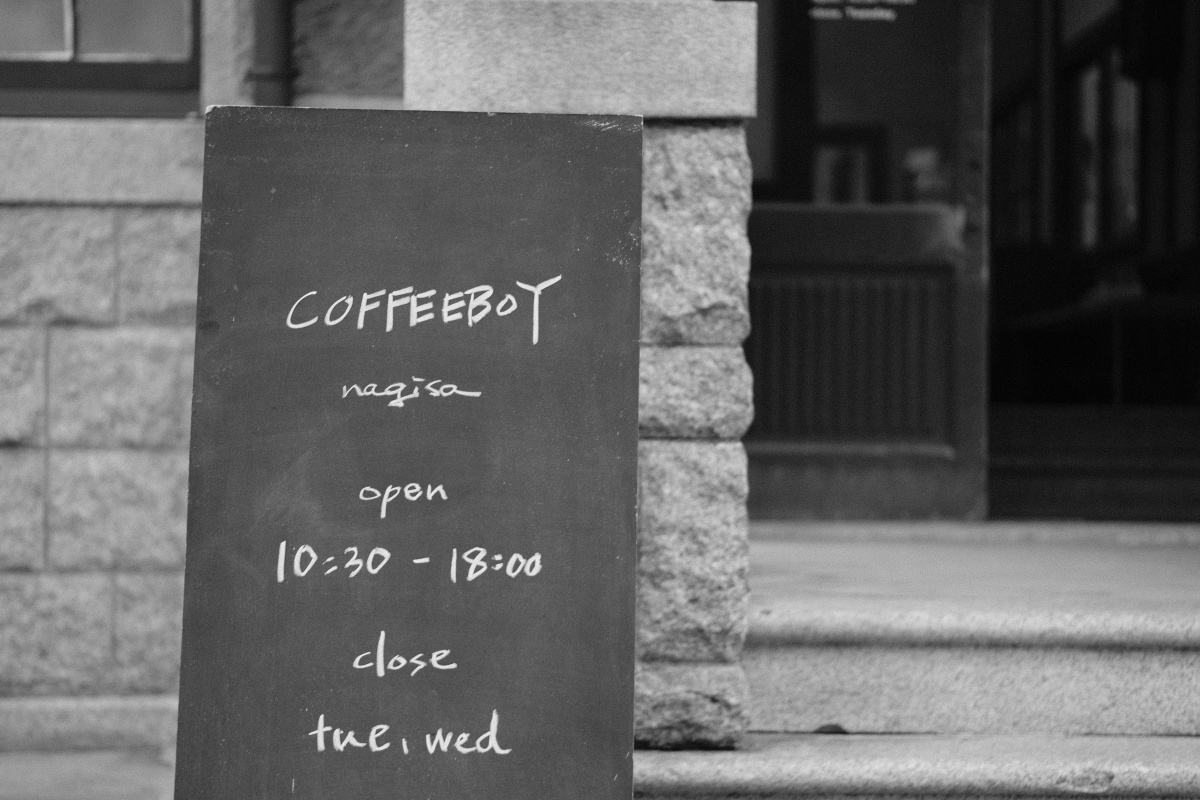 COFFEEBOY
nagisa
open
10:30 - 18:00
close
tue, wed